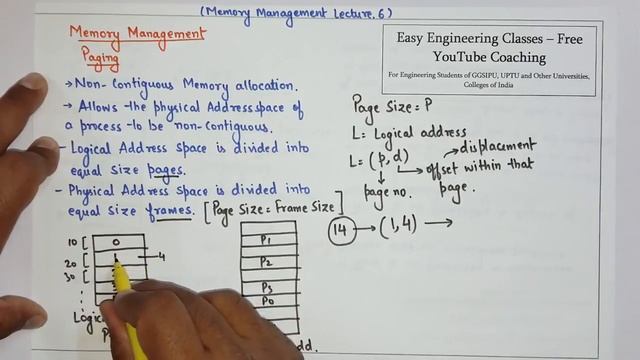 (Memory Management Lecture. 6)
Memory Management
Paging
→ Non-Contiguous Memory allocation.
→ Allows the physical Address space of
a process to be non-contiguous.
- Logical Address space is divided into
equal size pages.
- Physical Address space is divided into
equal size frames. [Page Size = Frame Size]
Easy Engineering Classes – Free
YouTube Coaching
For Engineering Students of GGSIPU, UPTU and Other Universities,
Colleges of India
Page Size = P
L = Logical address
L = (p, d) → displacement
→ offset within that
page no. page.
14 → (1, 4) →
10 [ 0
20 [ 1 - 4
30 [
P1
P2
P3
P0